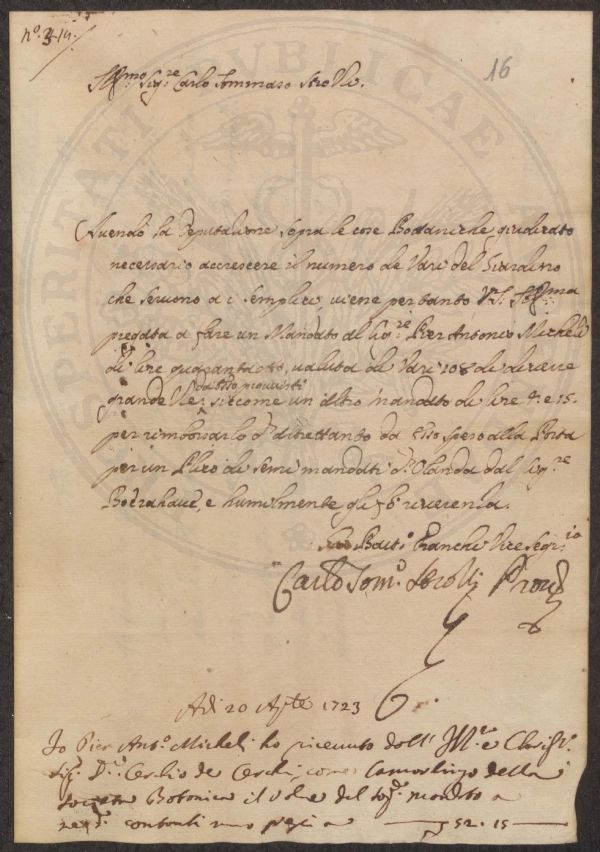 nº. 314.
16
Sig.re Carlo Tommaso Strozzi.
Avendo la Deputazione sopra le cose Bottaniche giudicato
necessario accrescere il numero de Vasi del Giardino
che servono a i Semplici, viene pertanto VS. Ill.ma
pregata a fare un Mandato al Sig.re Pier Antonio Micheli
di lire quarantotto, valuta di Vasi 108 di diverse
grandezze, da esso provvisti
siccome un altro mandato di lire 4. e 15.
per rimborsarlo di altrettanto da esso speso alla Posta
per un Plico di Semi mandati d'Olanda dal Sig.re
Boerahave, e humilmente gli fò riverenza.
Gio Batt.a Franchi Vice Segr.io
Carlo Tom.o Strozzi
Adì 20 Ag.te 1723
Io Pier Ant.o Micheli ho ricevuto dall' Ill.re e Clariss.o
Sig. de Cerchi, come Camarlingo della
Società Botanica il valore del sud.o mandato
contanti 52. 15